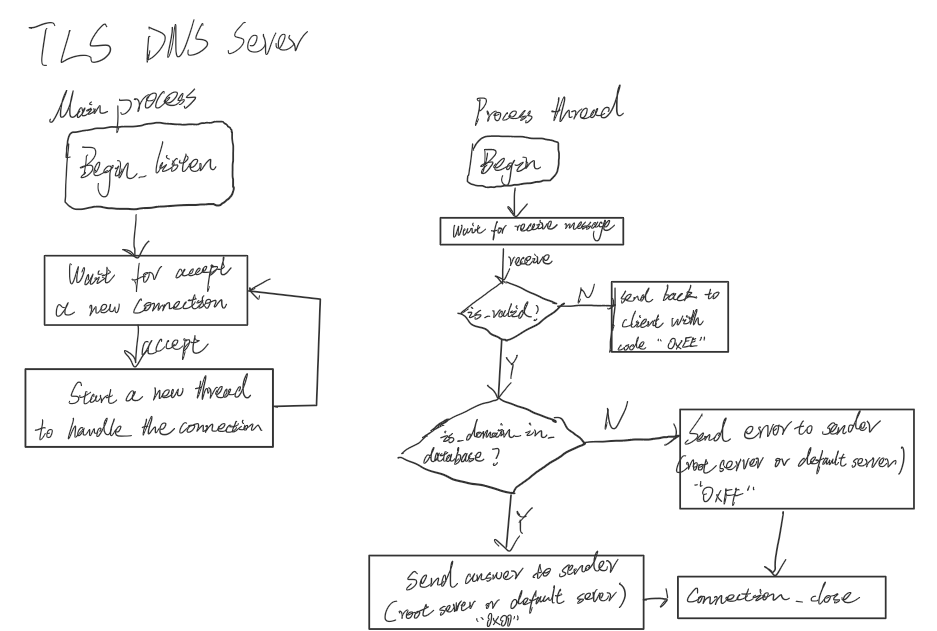 TLS DNS Sever
Main process
Begin_listen
Wait for accept
a new connection
accept
Start a new thread
to handle the connection
Process thread
Begin
Wait for receive message
receive
is_valid?
N
send back to
client with
code "0xEE"
Y
is_domain_in_
database?
N
Send error to sender
(root server or default server)
"0xFF"
Y
Send answer to sender
(root server or default sever)
"0x00"
Connection_close